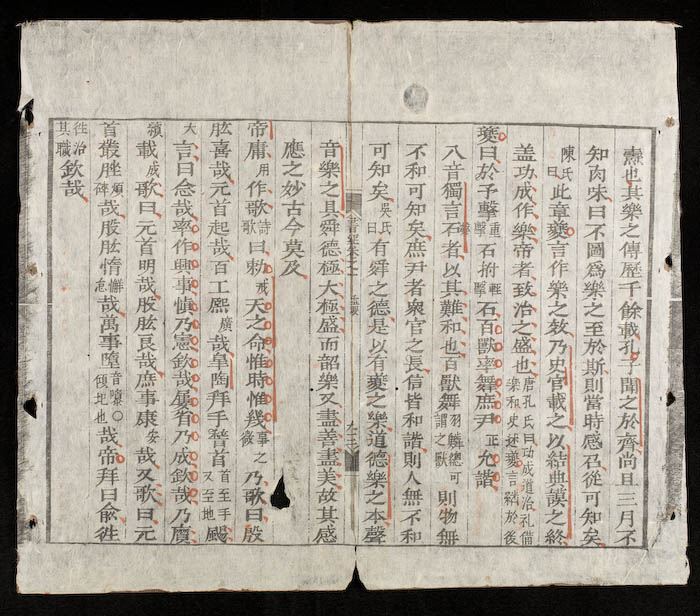 燾也其樂之傳歷千餘載孔子聞之於齊尚且三月不
知肉味曰不圖爲樂之至於斯則當時感召從可知矣
陳氏曰此章夔言作樂之效乃史官載之以結典謨之終
盖功成作樂帝者致治之盛也唐孔氏曰功成道洽孔備樂和史述夔言繼於後
夔曰於予擊重擊石拊輕擊石百獸率舞庶尹正允諧
八音獨言石者以其難和也百獸舞羽鱗總可謂之獸則物無
不和可知矣庶尹者衆官之長信皆和諧則人無不和
可知矣吳氏曰有舜之德是以有夔之樂道德樂之本聲
書經
音樂之具舜德極大極盛而韶樂又盡善盡美故其感
應之妙古今莫及
帝庸用作歌詩歌曰勑戒天之命惟時惟幾事之微乃歌曰股
肱喜哉元首起哉百工熙廣哉臯陶拜手稽首首至手又至地颺
大言曰念哉率作興事愼乃憲欽哉屢省乃成欽哉乃賡
續載成歌曰元首明哉股肱良哉庶事康安哉又歌曰元
首叢脞煩碎哉股肱惰懈怠哉萬事墮音隳○傾圮也哉帝拜曰兪徃
徃治其職欽哉